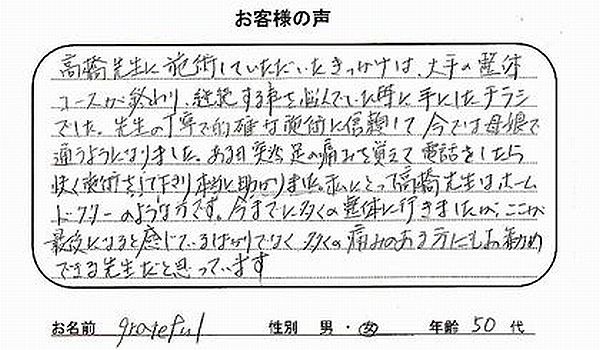 お客様の声
高橋先生に施術していただいたきっかけは、大手の整体
コースが終わり、継続する事を悩んでいた時に手にしたチラシ
でした。先生の丁寧で的確な施術に信頼して今では母娘で
通うようになりました。ある日突然足の痛みを覚えて電話をしたら
快く施術をして下さり本当に助かりました。私にとって高橋先生はホーム
ドクターのような方です。今までに多くの整体に行きましたが、ここが
最後になると感じているばかりでなく多くの痛みのある方にもお勧め
できる先生だと思っています
お名前 grateful 性別 男・女 年齢 50 代